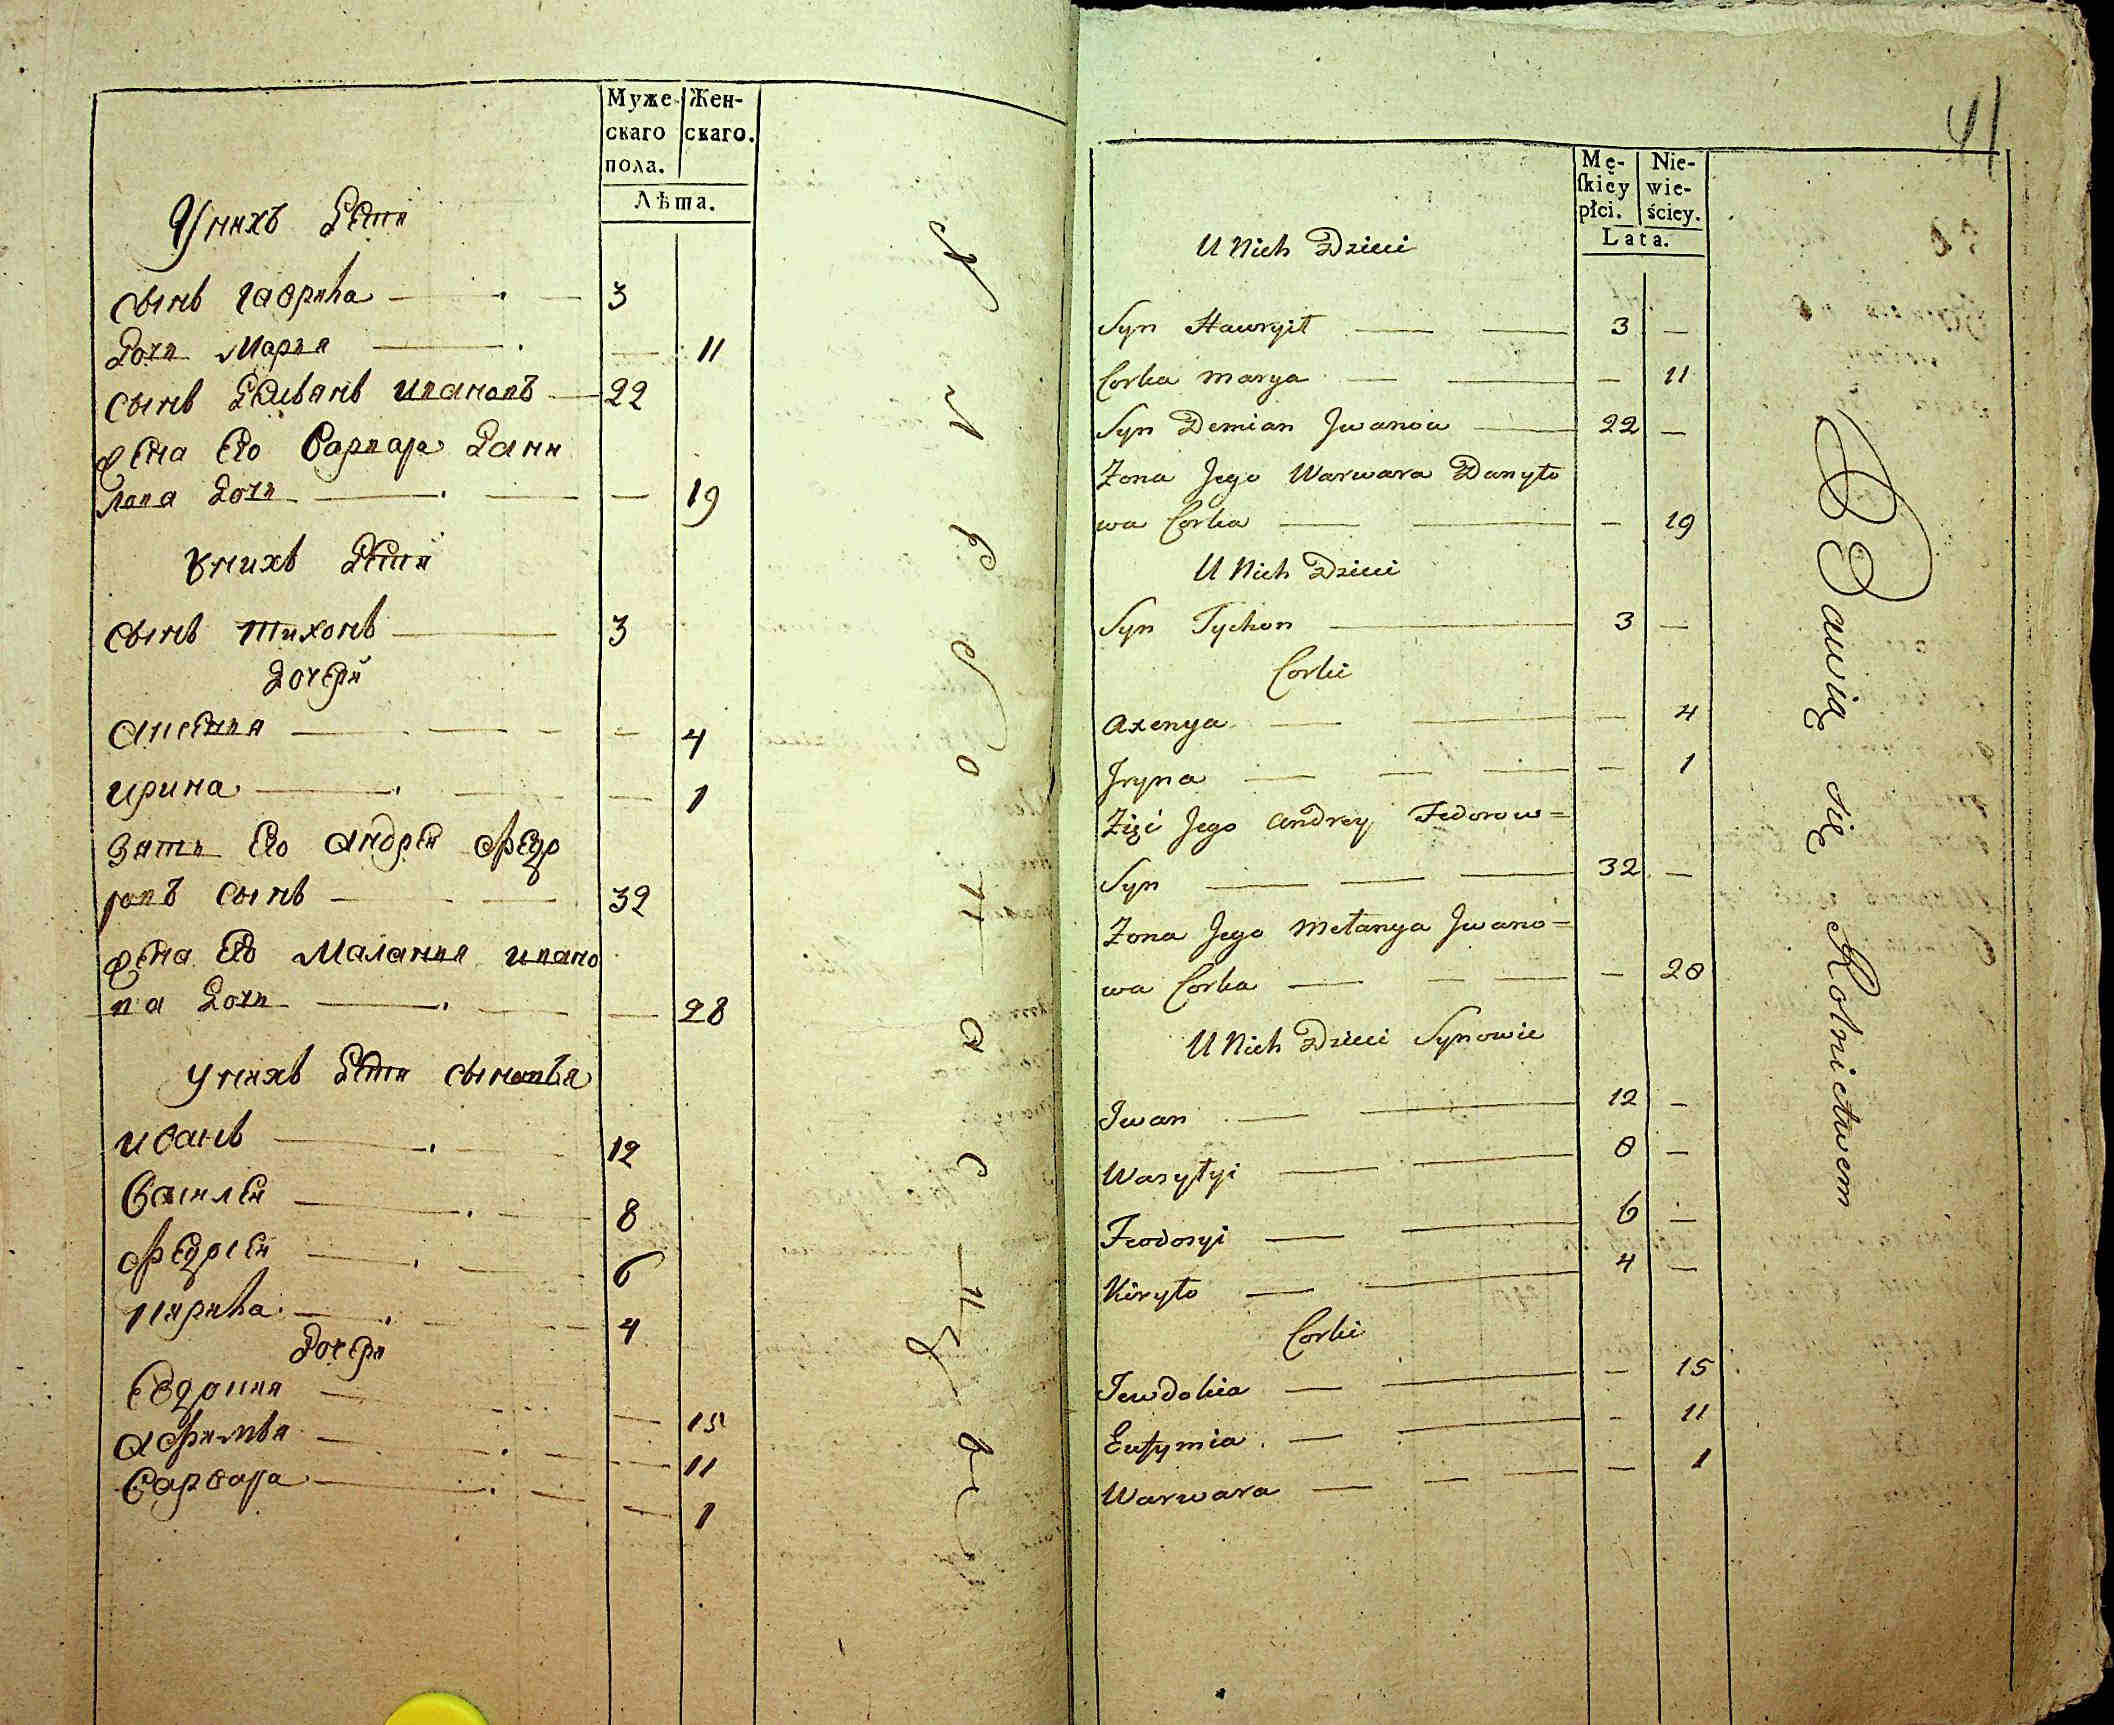 Муже- Жен-
скаго скаго.
пола.
Лѣта.
У нихъ Дети
Сынъ Гаврила 3
Дочь Мария 11
Сынъ Демьянъ Ивановъ 22
Жена Его Варвара Дани
лова Дочь 19
У нихъ Дети
Сынъ Тихонъ 3
Дочери
Аксения 4
Ирина 1
Зять Его Андреи Федо
ровъ Сынъ 32
Жена Его Малания Ивано
ва Дочь 28
У нихъ Дети Сыновья
Иванъ 12
Василеи 8
Федосеи 6
Кирила 4
Дочери
Евдокия 15
Афимья 11
Варвара 1
41
Mę- Nie-
ſkiéy wie-
płci. ściey.
Lata.
U Nich Dzieci
Syn Hawryił 3
Corka Marya 11
Syn Demian Jwanow 22
Żona Jego Warwara Danyło
wa Corka 19
U Nich Dzieci
Syn Tychon 3
Corki
Axenya 4
Jryna 1
Zięć Jego Andrey Fedorow=
Syn 32
Żona Jego Mełanya Jwano=
wa Corka 28
U Nich Dzieci Synowie
Jwan 12
Wasyłyi 8
Feodosyi 6
Kiryło 4
Corki
Jewdokia 15
Eufymia 11
Warwara 1
Bawią się Rolnictwem